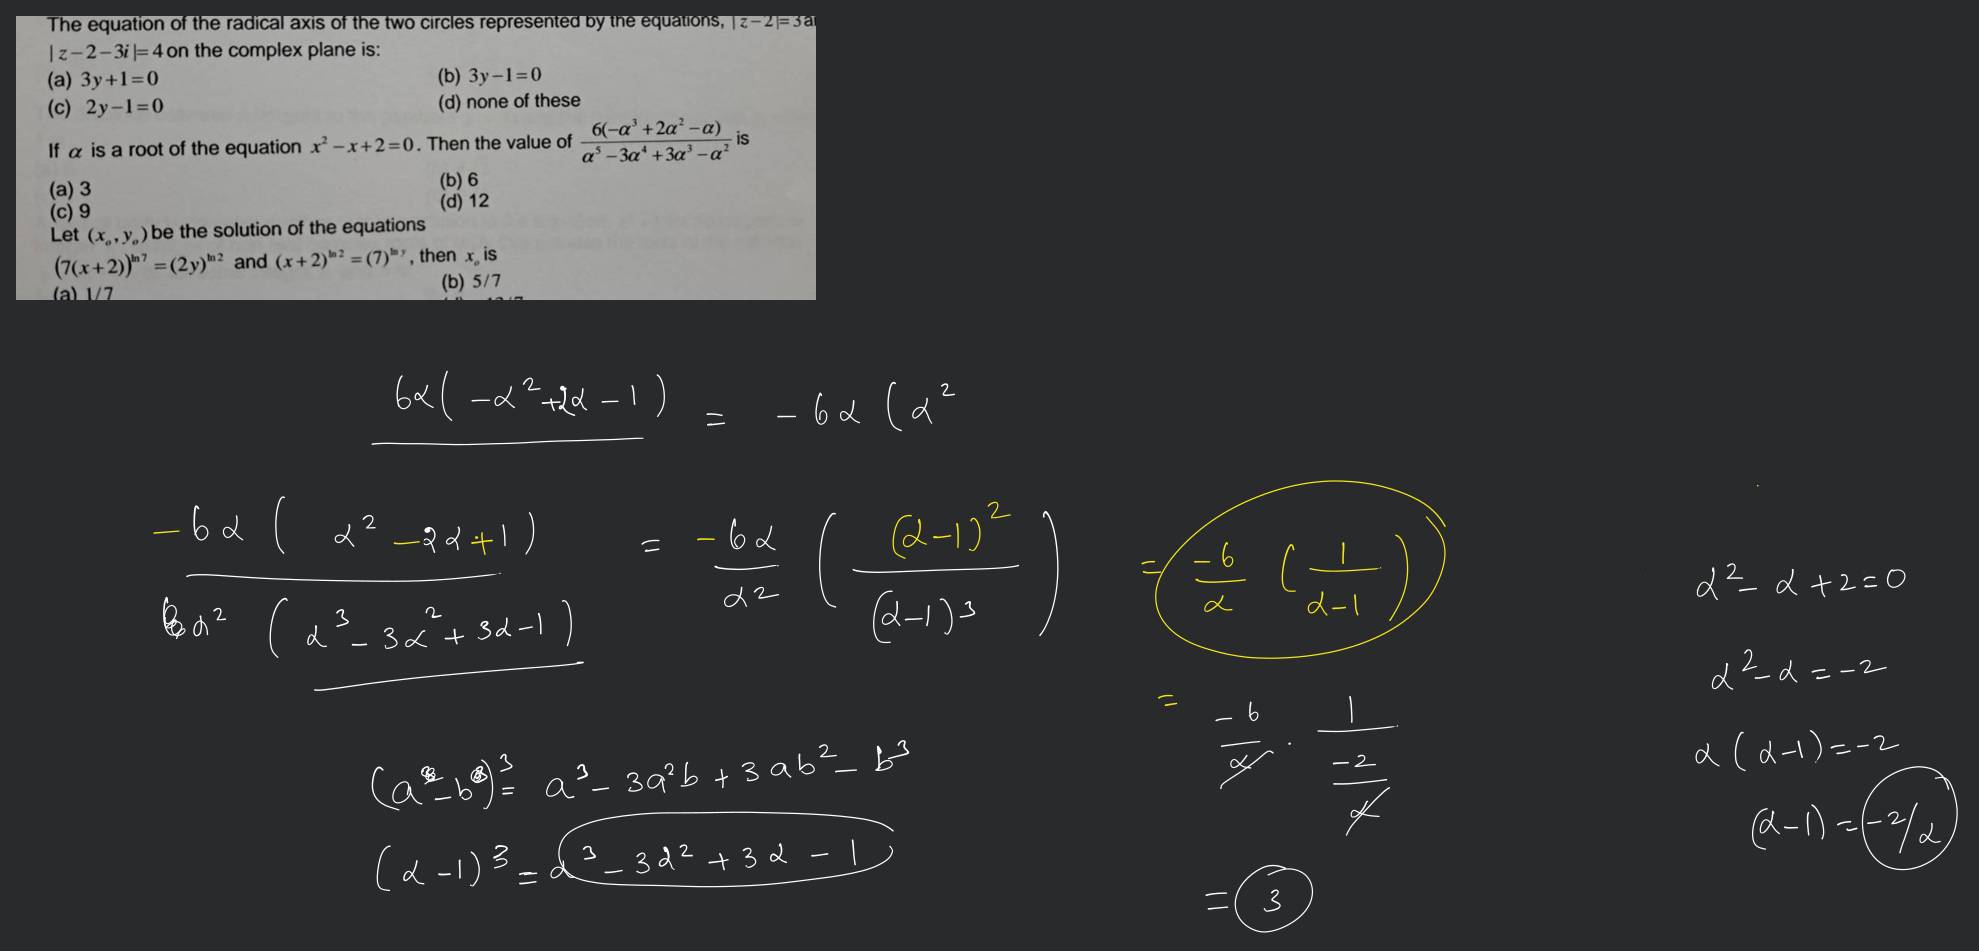 The equation of the radical axis of the two circles represented by the equations, |z−2|=3a
|z−2−3i|=4 on the complex plane is:
(a) 3y+1=0 (b) 3y−1=0
(c) 2y−1=0 (d) none of these
If α is a root of the equation x²−x+2=0. Then the value of 6(−α³+2α²−α)/(α⁵−3α⁴+3α³−α²) is
(a) 3 (b) 6
(c) 9 (d) 12
Let (xₒ, yₒ) be the solution of the equations
(7(x+2))^(ln7) = (2y)^(ln2) and (x+2)^(ln2) = (7)^(ln y), then xₒ is
(a) 1/7 (b) 5/7
6α(−α²+2α−1) = −6α(α²
−6α(α²−2α+1) / α²(α³−3α²+3α−1) = −6α/α² ((α−1)²/(α−1)³) = −6/α (1/(α−1))
= −6/α · 1/(−2/α)
= 3
(a−b)³ = a³−3a²b+3ab²−b³
(α−1)³ = α³−3α²+3α−1
α²−α+2=0
α²−α=−2
α(α−1)=−2
(α−1)=−2/α